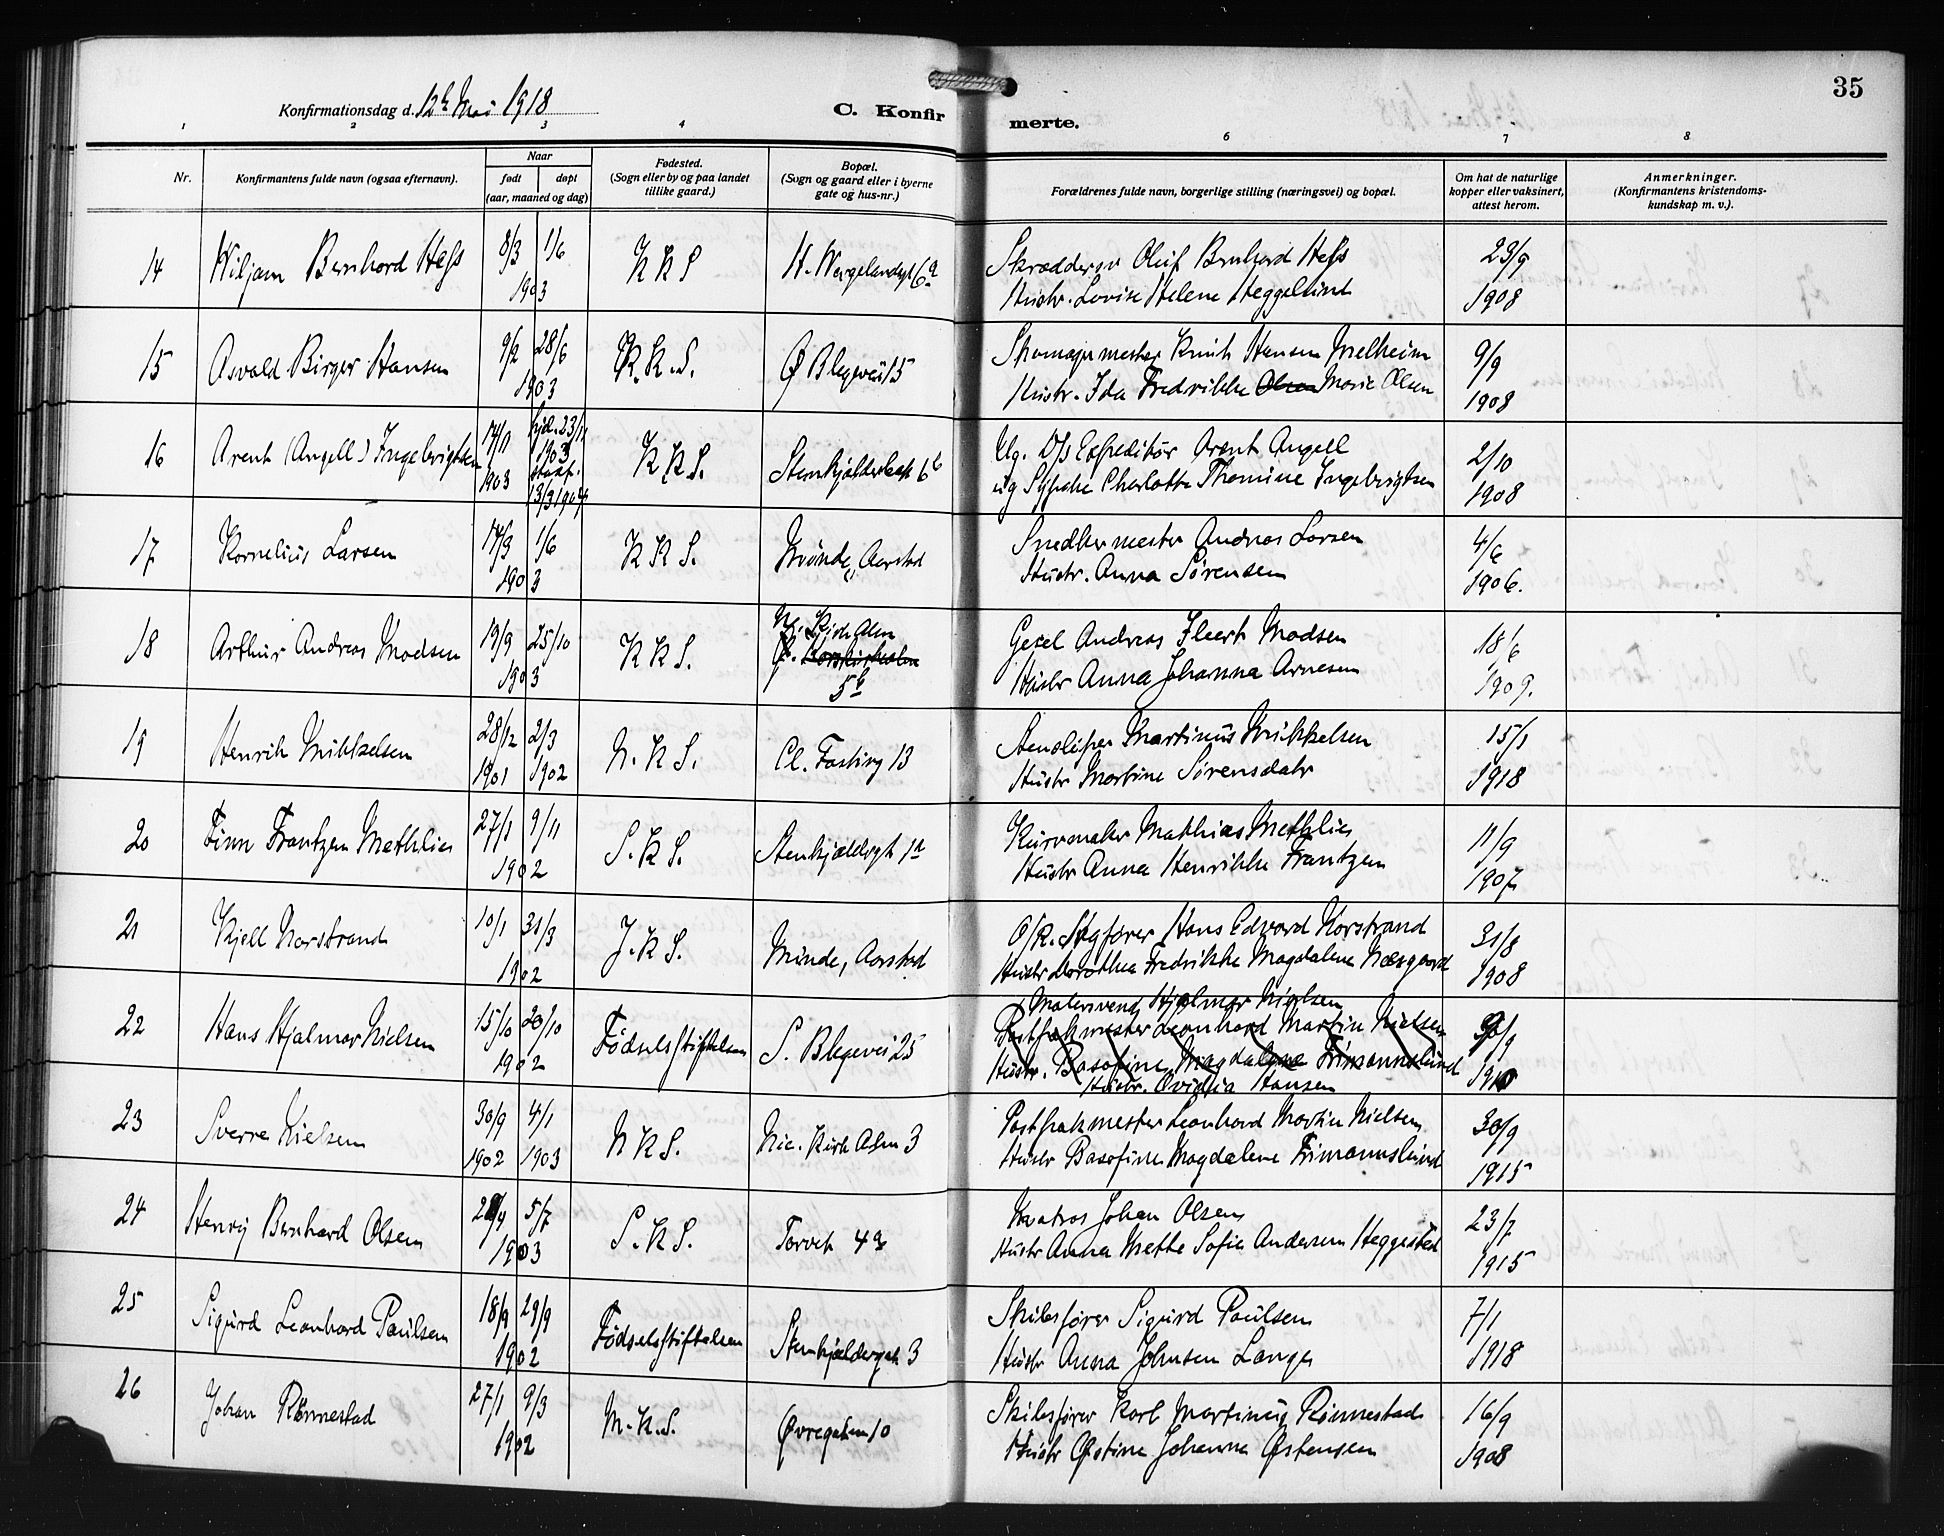 35
Konfirmationsdag d. 12te Mai 1918
C. Konfirmerte.
1 2 3 4 5 6 7 8
Nr.
Konfirmantens fulde navn (ogsaa efternavn).
Naar
født døpt
(aar, maaned og dag)
Fødested.
(Sogn eller by og paa landet
tillike gaard.)
Bopæl.
(Sogn og gaard eller i byerne
gate og hus-nr.)
Forældrenes fulde navn, borgerlige stilling (næringsvei) og bopæl.
Om hat de naturlige
kopper eller vaksinert,
attest herom.
Anmerkninger.
(Konfirmantens kristendoms-
kundskap m. v.).
14 Wiljam Bernhard Hess 8/3 1/6 1903 K K S H. Wergelandsgt 6a
Skrædersv Oluf Bernhard Hess 23/9
Hustr. Lovise Helene Heggelund 1908
15 Osvald Birger Hansen 9/2 28/6 1903 K. K. S. Ø Blegevei 15
Skomagermester Knut Hansen Melheim 9/9
Hustr. Ida Fredrikke Olsen Marie Olsen 1908
16 Arent (Angell) Ingebrigtsen 14/11 1903 hjd. 23/11 1903 stadf. 13/3 1904 K K S. Stenkjelderbak 6b
Ug. D/s Expeditør Arent Angell 2/10
ug Charlotte Thomine Ingebrigtsen 1908
17 Kornelius Larsen 14/3 1/6 1903 K K S. Minde, Aarstad
Snedkermester Andreas Larsen 4/6
Hustr. Anna Sørensen 1906.
18 Arthur Andreas Madsen 19/9 25/10 1903 K K S. N. Kirk Alm 5b
Gesel Andreas Fleert Madsen 18/6
Hustr Anna Johanna Arnesen 1909.
19 Henrik Mikkelsen 28/12 1901 2/3 1902 N. K S. Cl. Fasting 13
Stensliper Martinus Mikkelsen 15/1
Hustr Martine Sørensdatr 1918
20 Finn Frantzen Methlie 27/1 9/11 1902 S. K S. Stenkjeldergt 1a
Kurvmaker Mathias Methlie 11/9
Hustr Anna Henrikke Frantzen 1907
21 Kjell Korstrand 10/1 31/3 1902 J. K S. Minde, Aarstad
O/K. Hans Edvard Korstrand 31/8
Hustr Dorothea Fredrikke Magdalene Næsgaard 1908
22 Hans Hjalmar Nielsen 15/10 20/10 1902 Fødselsstiftelsen S. Blegevei 25
Malersvend Hjalmar Nielsen
Postpakmester Leonhard Martin Nielsen
Hustr. Basofine Magdalene Frimannslund
Hustr. Ovidia Hansen
23 Sverre Nielsen 30/9 1902 4/1 1903 N K S. Nic. Kirk Alm 3
Postpakmester Leonhard Martin Nielsen 30/9
Hustr Basofine Magdalene Frimannslund 1915
24 Henry Bernhard Olsen 5/7 1903 S. K S. Torvet 4a
Matros Johan Olsen 23/7
Hustr Anna Mette Sofie Andersen Heggestad 1915
25 Sigurd Leonhard Paulsen 18/9 29/9 1902 Fødselsstiftelsen Stenkjeldergt 3
Skibsfører Sigurd Paulsen 7/1
Hustr Anna Johnsen Lange 1918
26 Johan Rønnestad 27/1 9/3 1902 M. K. S. Øvregaten 10
Skibsfører Karl Martinus Rønnestad 16/9
Hustr Johanna Østensen 1908